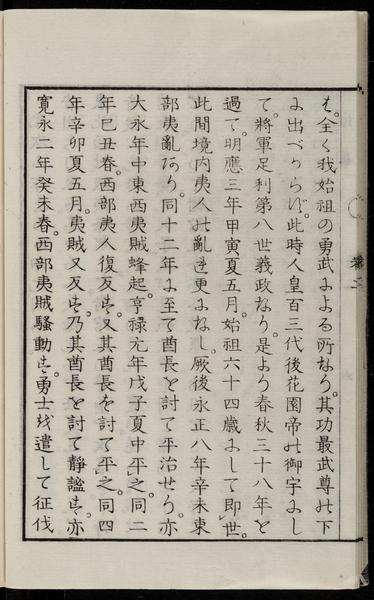 は。全く我始祖の勇武による所なり。其功最武尊の下
に出べからじ。此時人皇百三代後花園帝の御宇にし
て。將軍足利第八世義政なり。是より春秋三十八年を
過て。明應三年甲寅夏五月。始祖六十四歳にして即世。
此間境内夷人の亂を更になし。厥後永正八年辛未東
部夷亂あり。同十二年に至て酋長を討て平治せり。亦
大永年中東西夷賊蜂起。亨禄元年戊子夏中平之。同二
年巳丑春。西部夷人復反す。又其酋長を討て平之。同四
年辛卯夏五月。夷賊又反す。乃其酋長を討て靜謐す。亦
寛永二年癸未春。西部夷賊騒動す。勇士を遣して征伐